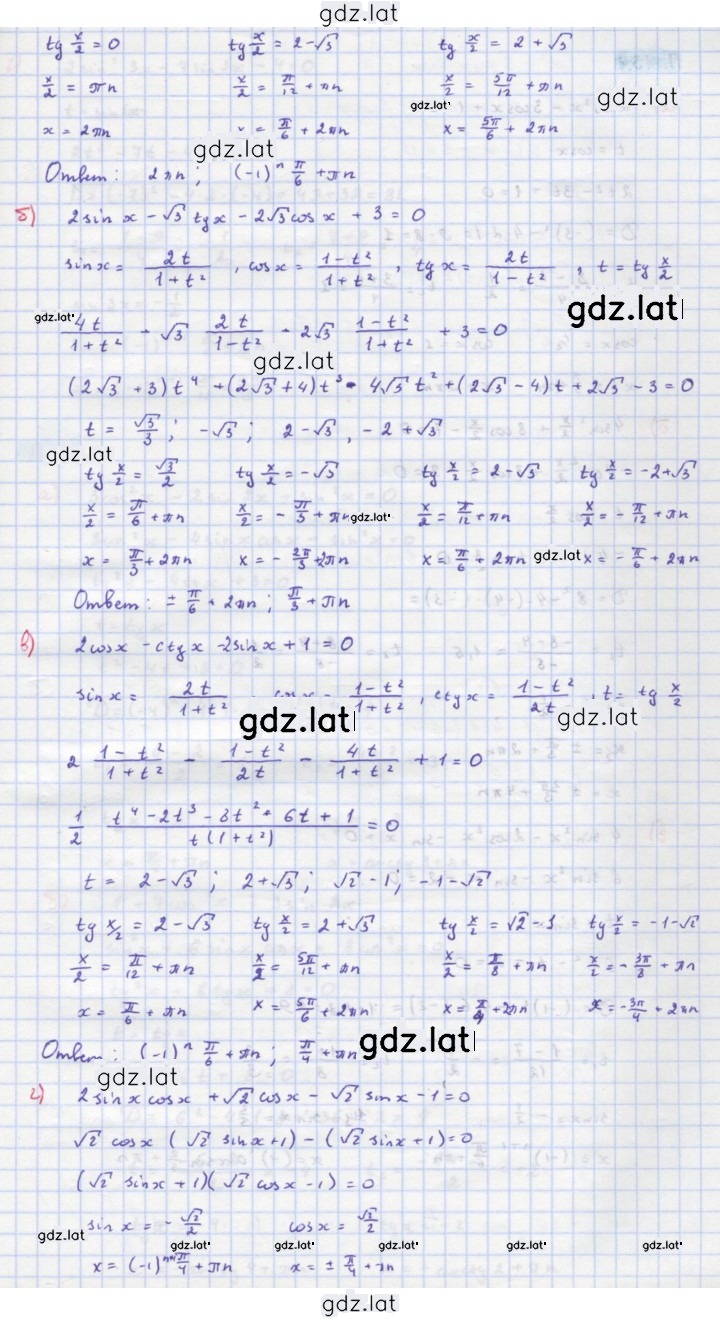 gdz.lat
tg x/2 = 0    tg x/2 = 2-√3    tg x/2 = 2+√3
x/2 = πn    x/2 = π/12 + πn    x/2 = 5π/12 + πn
gdz.lat gdz.lat
x = 2πn    = π/6 + 2πn    x = 5π/6 + 2πn
gdz.lat
Ответ: 2πn; (-1)^n π/6 + πn
б) 2sin x - √3 tg x - 2√3 cos x + 3 = 0
sin x = 2t/(1+t²), cos x = (1-t²)/(1+t²), tg x = 2t/(1-t²), t = tg x/2
gdz.lat gdz.lat
4t/(1+t²) - √3 2t/(1-t²) - 2√3 (1-t²)/(1+t²) + 3 = 0
gdz.lat
(2√3 + 3)t⁴ + (2√3+4)t³ - 4√3 t² + (2√3 - 4)t + 2√3 - 3 = 0
t = √3/3; -√3; 2-√3, -2+√3
gdz.lat
tg x/2 = √3/2    tg x/2 = -√3    tg x/2 = 2-√3    tg x/2 = -2+√3
x/2 = π/6 + πn    x/2 = -π/3 + πn    x/2 = π/12 + πn    x/2 = -π/12 + πn
gdz.lat
x = π/3 + 2πn    x = -2π/3 + 2πn    x = π/6 + 2πn gdz.lat x = -π/6 + 2πn
Ответ: ± π/6 + 2πn; π/3 + πn
в) 2cos x - ctg x - 2sin x + 1 = 0
sin x = 2t/(1+t²) (1-t²)/(1+t²), ctg x = (1-t²)/2t, t = tg x/2
gdz.lat gdz.lat
2 (1-t²)/(1+t²) - (1-t²)/2t - 4t/(1+t²) + 1 = 0
1/2 (t⁴ - 2t³ - 8t² - 6t + 1)/(t(1+t²)) = 0
t = 2-√3; 2+√3; √2-1; -1-√2
tg x/2 = 2-√3    tg x/2 = 2+√3    tg x/2 = √2-1    tg x/2 = -1-√2
x/2 = π/12 + πn    x/2 = 5π/12 + πn    x/2 = π/8 + πn    x/2 = -3π/8 + πn
x = π/6 + πn    x = 5π/6 + 2πn    x = π/4 + 2πn    x = -3π/4 + 2πn
Ответ: (-1)^n π/6 + πn; π/4 + πn gdz.lat
gdz.lat
г) 2sin x cos x + √2 cos x - √2 sin x - 1 = 0
√2 cos x (√2 sin x + 1) - (√2 sin x + 1) = 0
(√2 sin x + 1)(√2 cos x - 1) = 0
sin x = -√2/2    cos x = √2/2
gdz.lat gdz.lat gdz.lat gdz.lat gdz.lat gdz.lat
x = (-1)^(n+1) π/4 + πn    x = ± π/4 + πn
gdz.lat